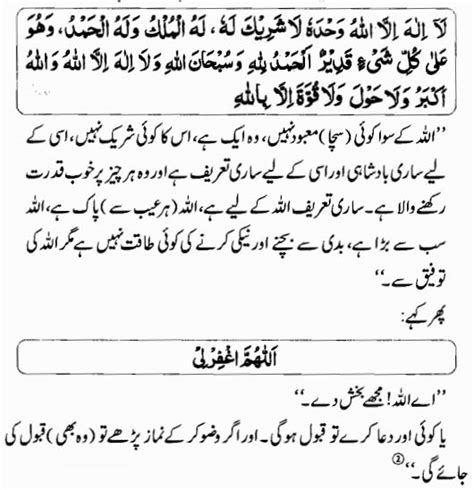 لَآ اِلٰهَ اِلَّا اللهُ وَحْدَهٗ لَا شَرِيْكَ لَهٗ، لَهُ الْمُلْكُ وَلَهُ الْحَمْدُ، وَهُوَ
عَلٰى كُلِّ شَیْءٍ قَدِيْرٌ اَلْحَمْدُ لِلّٰهِ وَسُبْحَانَ اللهِ وَلَا اِلٰهَ اِلَّا اللهُ وَاللهُ
اَكْبَرُ وَلَا حَوْلَ وَلَا قُوَّةَ اِلَّا بِاللهِ
’’اللہ کے سوا کوئی (سچا) معبود نہیں، وہ ایک ہے، اس کا کوئی شریک نہیں، اسی کے
لیے ساری بادشاہی اور اسی کے لیے ساری تعریف ہے اور وہ ہر چیز پر خوب قدرت
رکھنے والا ہے۔ ساری تعریف اللہ کے لیے ہے، اللہ (ہر عیب سے) پاک ہے، اللہ
سب سے بڑا ہے، بدی سے بچنے اور نیکی کرنے کی کوئی طاقت نہیں ہے مگر اللہ کی
توفیق سے۔‘‘
پھر کہے:
اَللّٰهُمَّ اغْفِرْ لِیْ
’’اے اللہ! مجھے بخش دے۔‘‘
یا کوئی اور دعا کرے تو قبول ہوگی۔ اور اگر وضو کر کے نماز پڑھے تو (وہ بھی) قبول کی
جائے گی۔‘‘②